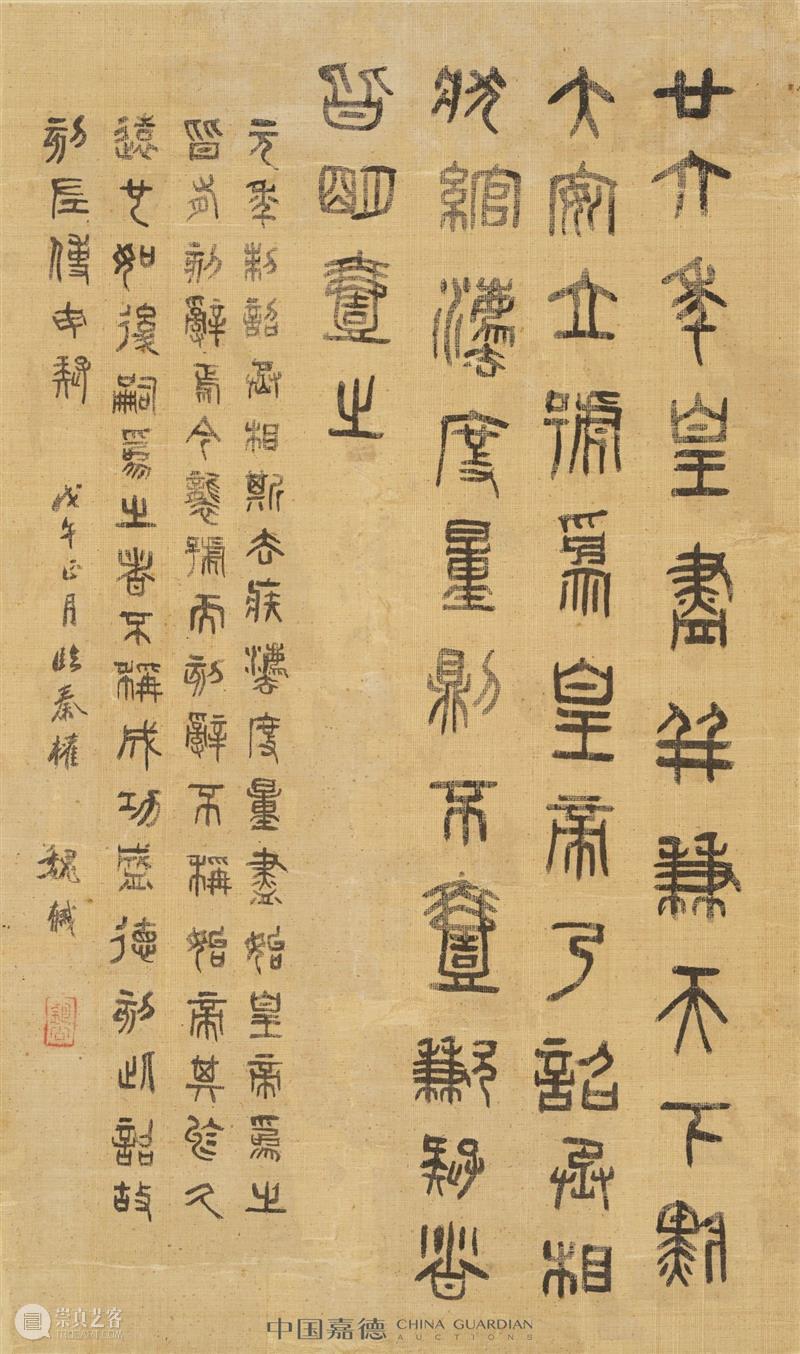 廿六年皇盡并兼天下黔
大安立號爲皇帝乃詔丞相
狀綰灋度量則不壹歉疑者
皆明壹之
元年制詔丞相斯去疾灋度量盡始皇帝爲之
皆有刻辭焉今襲號而刻辭不稱始帝其於久
遠也如後嗣爲之者不稱成功盛德刻此詔故
刻左使毋疑 戊午正月臨秦權 魏戫
中国嘉德 CHINA GUARDIAN
AUCTIONS
崇真艺客